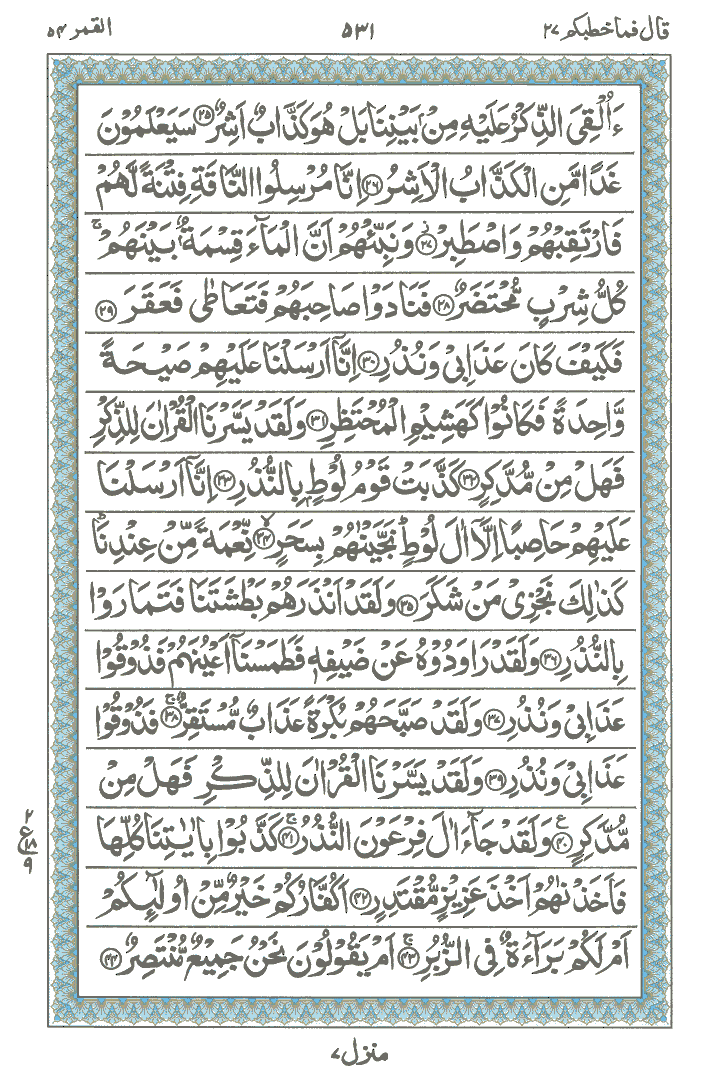 قال فما خطبكم ٢٧ ٥٣١ القمر ٥٤
ءَاُلْقِىَ الذِّكْرُ عَلَيْهِ مِنْۢ بَيْنِنَا بَلْ هُوَ كَذَّابٌ اَشِرٌ ﴿٢٥﴾ سَيَعْلَمُوْنَ
غَدًا مَّنِ الْكَذَّابُ الْاَشِرُ ﴿٢٦﴾ اِنَّا مُرْسِلُوا النَّاقَةِ فِتْنَةً لَّهُمْ
فَارْتَقِبْهُمْ وَاصْطَبِرْ ﴿٢٧﴾ وَنَبِّئْهُمْ اَنَّ الْمَآءَ قِسْمَةٌۢ بَيْنَهُمْ ۚ
كُلُّ شِرْبٍ مُّحْتَضَرٌ ﴿٢٨﴾ فَنَادَوْا صَاحِبَهُمْ فَتَعَاطٰى فَعَقَرَ ﴿٢٩﴾
فَكَيْفَ كَانَ عَذَابِىْ وَنُذُرِ ﴿٣٠﴾ اِنَّآ اَرْسَلْنَا عَلَيْهِمْ صَيْحَةً
وَّاحِدَةً فَكَانُوْا كَهَشِيْمِ الْمُحْتَظِرِ ﴿٣١﴾ وَلَقَدْ يَسَّرْنَا الْقُرْاٰنَ لِلذِّكْرِ
فَهَلْ مِنْ مُّدَّكِرٍ ﴿٣٢﴾ كَذَّبَتْ قَوْمُ لُوْطٍۭ بِالنُّذُرِ ﴿٣٣﴾ اِنَّآ اَرْسَلْنَا
عَلَيْهِمْ حَاصِبًا اِلَّآ اٰلَ لُوْطٍ ؕ نَجَّيْنٰهُمْ بِسَحَرٍ ﴿٣٤﴾ نِّعْمَةً مِّنْ عِنْدِنَا ؕ
كَذٰلِكَ نَجْزِىْ مَنْ شَكَرَ ﴿٣٥﴾ وَلَقَدْ اَنْذَرَهُمْ بَطْشَتَنَا فَتَمَارَوْا
بِالنُّذُرِ ﴿٣٦﴾ وَلَقَدْ رَاوَدُوْهُ عَنْ ضَيْفِهٖ فَطَمَسْنَآ اَعْيُنَهُمْ فَذُوْقُوْا
عَذَابِىْ وَنُذُرِ ﴿٣٧﴾ وَلَقَدْ صَبَّحَهُمْ بُكْرَةً عَذَابٌ مُّسْتَقِرٌّ ۚ ﴿٣٨﴾ فَذُوْقُوْا
عَذَابِىْ وَنُذُرِ ﴿٣٩﴾ وَلَقَدْ يَسَّرْنَا الْقُرْاٰنَ لِلذِّكْرِ فَهَلْ مِنْ
مُّدَّكِرٍ ﴿٤٠﴾ ع وَلَقَدْ جَآءَ اٰلَ فِرْعَوْنَ النُّذُرُ ۚ ﴿٤١﴾ كَذَّبُوْا بِاٰيٰتِنَا كُلِّهَا
٢
ع ١٨
٩
فَاَخَذْنٰهُمْ اَخْذَ عَزِيْزٍ مُّقْتَدِرٍ ﴿٤٢﴾ اَكُفَّارُكُمْ خَيْرٌ مِّنْ اُولٰٓئِكُمْ
اَمْ لَكُمْ بَرَآءَةٌ فِى الزُّبُرِ ۚ ﴿٤٣﴾ اَمْ يَقُوْلُوْنَ نَحْنُ جَمِيْعٌ مُّنْتَصِرٌ ﴿٤٤﴾
منزل ٧